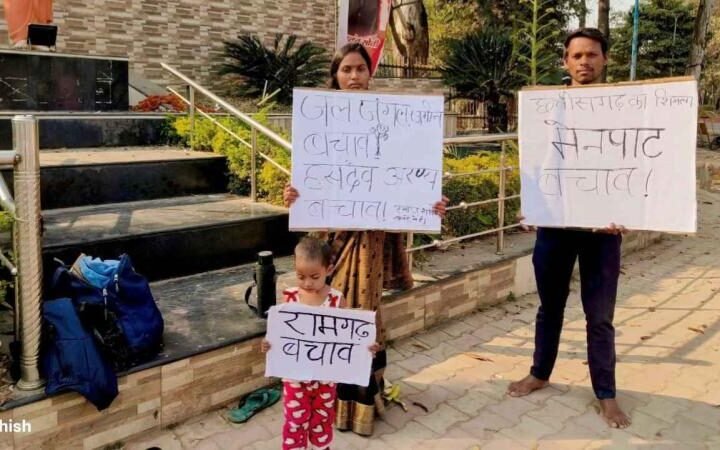 जल जंगल जमीन
बचाव!
हसदेव अरण्य
बचाव!
छत्तीसगढ़ का शिमला
मेनपाट
बचाव!
रामगढ़
बचाव
hish